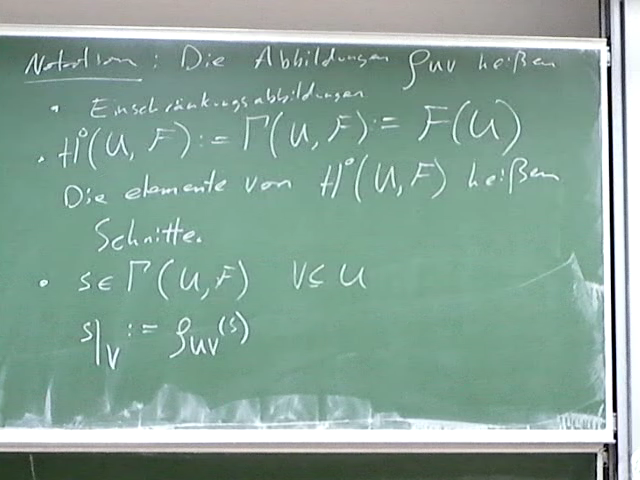 Notation : Die Abbildungen ρ_UV heißen
• Einschränkungsabbildungen
• H⁰(U, F) := Γ(U, F) := F(U)
Die elemente von H⁰(U, F) heißen
Schnitte.
• s ∈ Γ(U, F) V ⊆ U
s|_V := ρ_UV(s)